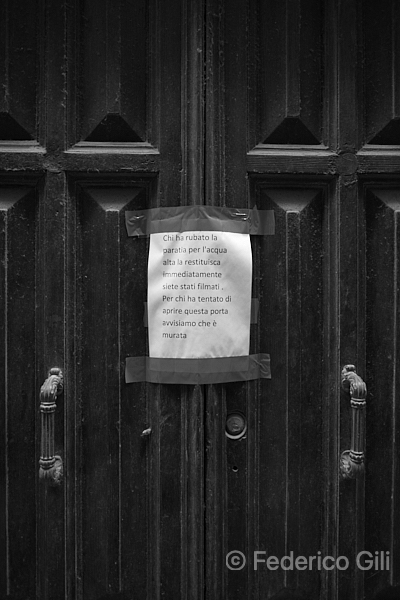 Chi ha rubato la
paratia per l'acqua
alta la restituisca
immediatamente
siete stati filmati .
Per chi ha tentato di
aprire questa porta
avvisiamo che è
murata
© Federico Gili